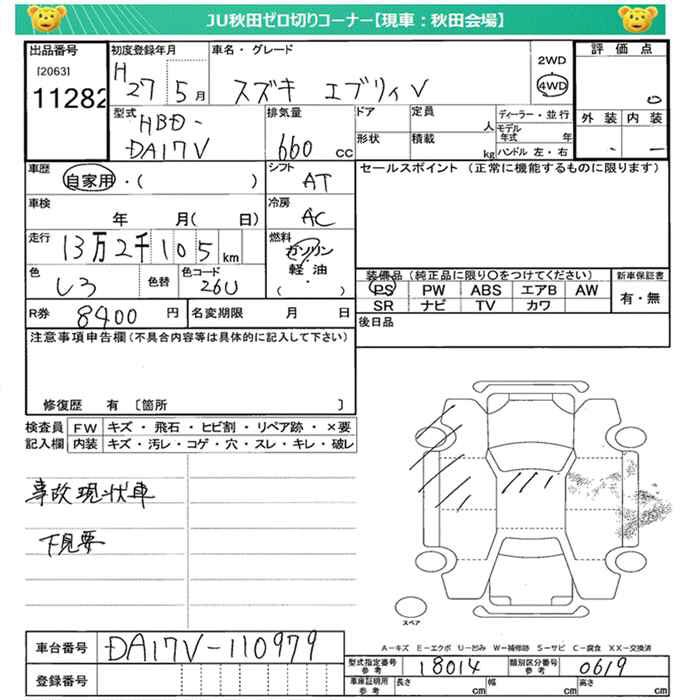 JU秋田ゼロ切りコーナー【現車：秋田会場】
出品番号
[2063]
11282
初度登録年月
H 27 5月
車名・グレード
スズキ エブリィV
2WD
4WD
評価点
0
外装 内装
- -
型式
HBD-
DA17V
排気量
660 cc
ドア
形状
定員
人
積載
kg
ディーラー・並行
モデル年式 年
ハンドル 左・右
車歴
自家用・( )
シフト
AT
セールスポイント (正常に機能するものに限ります)
車検
年 月( 日)
冷房
AC
走行
13万2千105km
燃料
ガソリン
軽・油
・
( )
色
しろ
色替
色コード
26U
装備品(純正品に限り○をつけてください)
PS PW ABS エアB AW
SR ナビ TV カワ
新車保証書
有・無
R券 8400円
名変期限 月 日
後日品
注意事項申告欄(不具合内容等は具体的に記入して下さい)
修復歴 有 〔箇所 〕
検査員記入欄
FW キズ・飛石・ヒビ割・リペア跡・×要
内装 キズ・汚レ・コゲ・穴・スレ・キレ・破レ
事故現状車
下見要
スペア
A－キズ E－エクボ U－凹み W－補修跡 S－サビ C－腐食 XX－交換済
車台番号 DA17V-110979
登録番号
型式指定番号参考 18014
類別区分番号参考 0619
車庫証明用参考
長さ cm
幅 cm
高さ cm